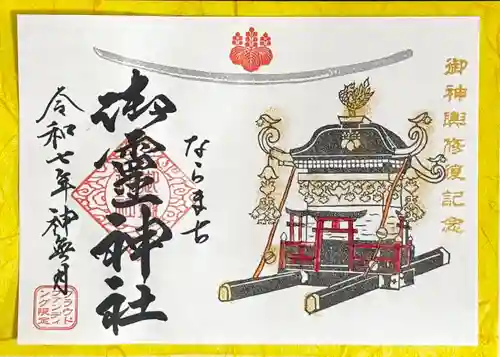 御神輿修復記念
ならまち
御靈神社
令和七年 神無月
クラウド
ファンディ
ング限定